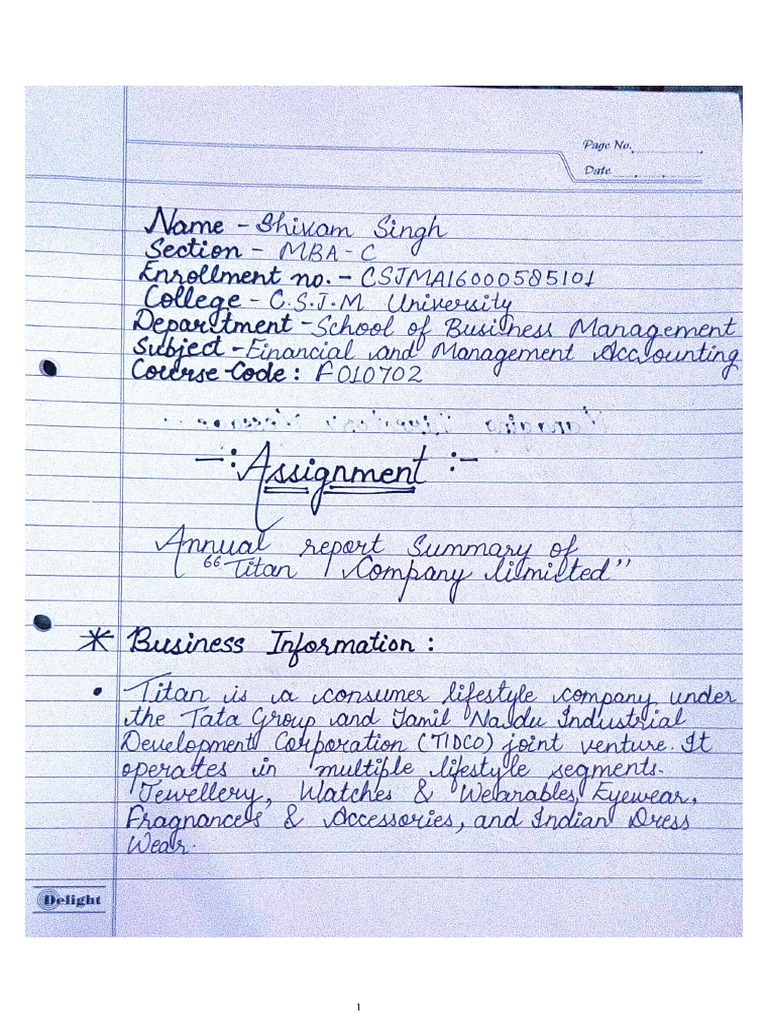 Page No.
Date
Name - Shivam Singh
Section - MBA - C
Enrollment no. - CSJMA16000585101
College - C.S.J.M University
Department - School of Business Management
Subject - Financial and Management Accounting
Course-Code: F010702
-: Assignment :-
Annual report Summary of
"Titan Company limited"
* Business Information:
• Titan is a consumer lifestyle company under
the Tata Group and Tamil Nadu Industrial
Development Corporation (TIDCO) joint venture. It
operates in multiple lifestyle segments-
Jewellery, Watches & Wearables, Eyewear,
Fragnances & Accessories, and Indian Dress
Wear.
Delight
1